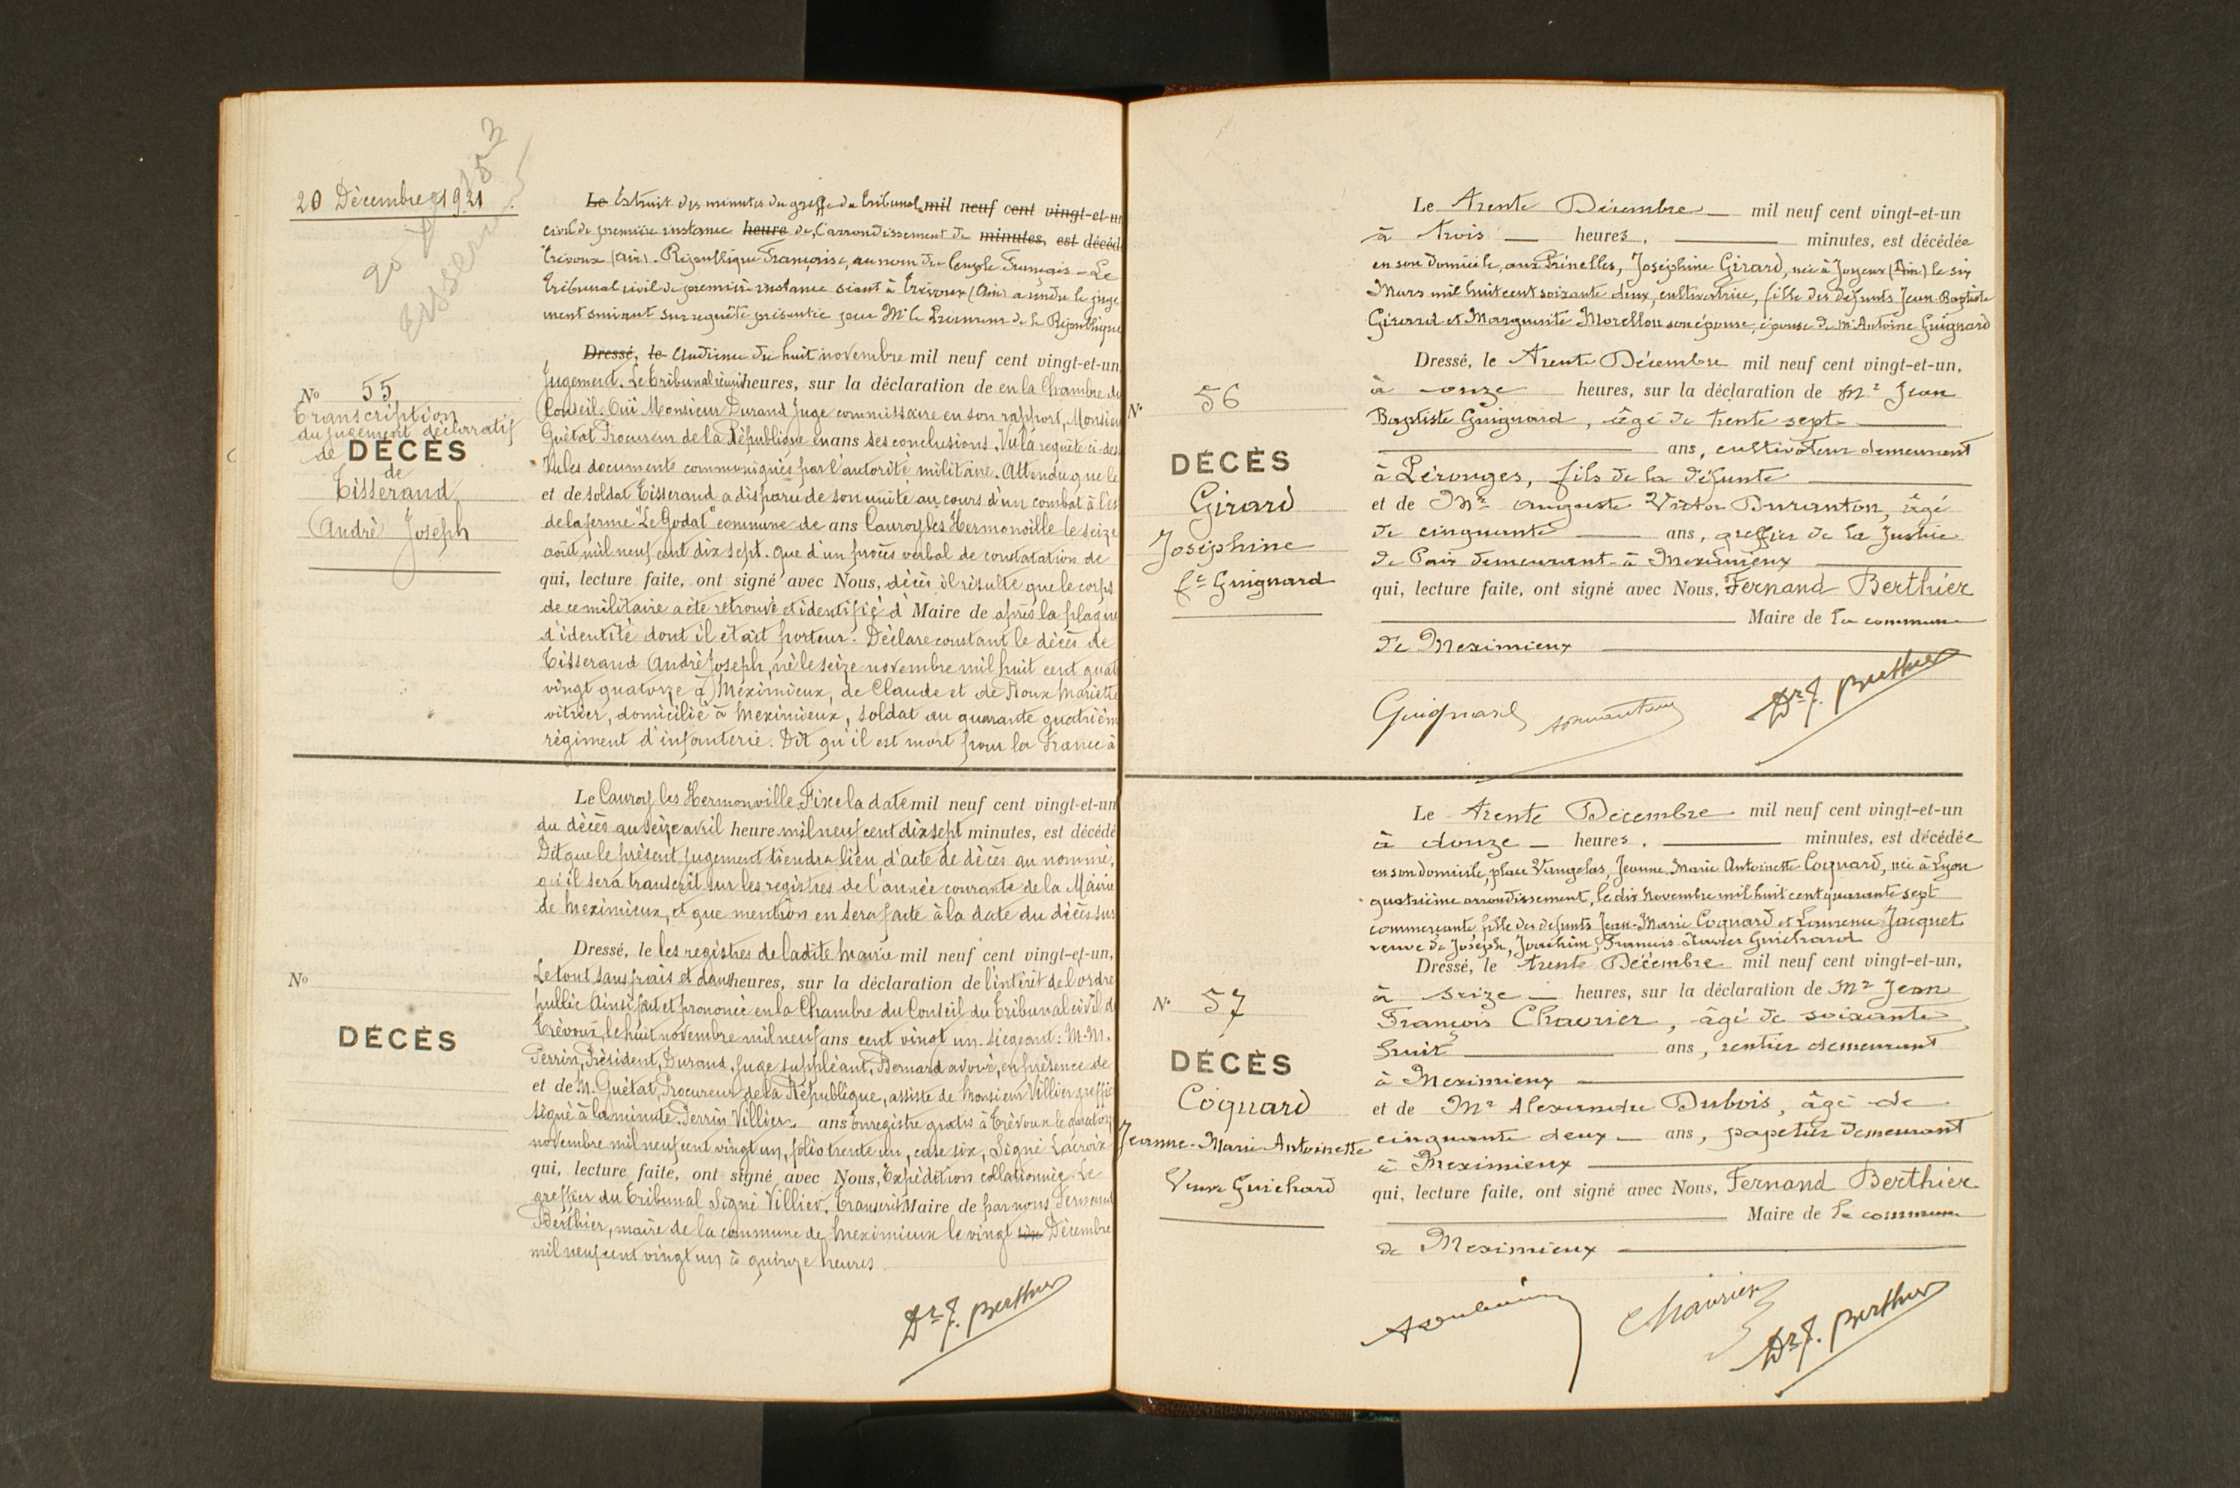 20 Décembre 1921
Le Extrait des minutes du greffe du tribunal mil neuf cent vingt-et-un
civil de première instance heure de l'arrondissement de minutes, est décédé
Trévoux (Ain). République Française, au nom du Peuple Français - Le
Tribunal civil de première instance séant à Trévoux (Ain) a rendu le juge
ment suivant sur requête présentée par Mr le Procureur de la République
Dressé, le Audience du huit novembre mil neuf cent vingt-et-un
Jugement. Le Tribunal réuni heures, sur la déclaration de en la Chambre du
Conseil. Oui Monsieur Durand Juge commissaire en son rapport, Monsieur
Guétat Procureur de la République en ans ses conclusions. Vu la requête ci-des
Vu les documents communiqués par l'autorité militaire. Attendu que le
et de soldat Tisserand a disparu de son unité au cours d'un combat à l'es
de la ferme "Le Godat" commune de ans Cauroy les Hermonville le seize
août mil neuf cent dix sept. que d'un procès verbal de constatation de
qui, lecture faite, ont signé avec Nous, décès il résulte que le corps
de ce militaire a été retrouvé et identifié d' Maire de après la plaque
d'identité dont il était porteur. Déclare constant le décès de
Tisserand André Joseph, né le seize novembre mil huit cent quat
vingt quatorze à Méximieux, de Claude et de Roux Mariette
vitrier, domicilié à Meximieux, soldat au quarante quatrièm
régiment d'infanterie. Dit qu'il est mort pour la France à
No 55
Transcription
du jugement déclaratif
de DÉCÈS
de
Tisserand
André Joseph
Le Cauroy les Hermonville. Fixe la date mil neuf cent vingt-et-un
du décès au seize avril heure mil neuf cent dix sept minutes, est décédé
Dit que le présent jugement tiendra lieu d'acte de décès au nommé,
qu'il sera transcrit sur les registres de l'année courante de la Mairie
de Meximieux, et que mention en sera faite à la date du décès sur
Dressé, le les registres de ladite Mairie mil neuf cent vingt-et-un,
Le tout sans frais et dans heures, sur la déclaration de l'intérêt de l'ordre
public Ainsi fait et prononcé en la Chambre du Conseil du Tribunal civil de
Trévoux, le huit novembre mil neuf ans cent vingt un. siégeant: M.M.
Perrin, Président, Durand, Juge suppléant, Bernard avoué, en présence de
et de M. Guétat, Procureur de la République, assisté de Monsieur Villier greffier
signé à la minute. Perrin Villier. ans Enregistré gratis à Trévoux le quatorze
novembre mil neuf cent vingt un, folio trente un, case six, Signé Lacroix
qui, lecture faite, ont signé avec Nous, Expédition collationnée. Le
greffier du Tribunal Signé Villier. Transcrit Maire de par nous Fernand
Berthier, maire de la commune de Meximieux le vingt six Décembre
mil neuf cent vingt un à quinze heures
No
DÉCÈS
Dr F. Berthier
Le Trente Décembre mil neuf cent vingt-et-un
à trois heures, minutes, est décédée
en son domicile, aux Prinelles, Joséphine Girard, née à Joyeux (Ain) le six
Mars mil huit cent soixante deux, cultivatrice, fille des défunts Jean-Baptiste
Girard et Marguerite Morellon son épouse, épouse de Mr Antoine Guignard
Dressé, le Trente Décembre mil neuf cent vingt-et-un,
à onze heures, sur la déclaration de Mr Jean
Baptiste Guignard, âgé de trente sept
ans, cultivateur demeurant
à Pérouges, fils de la défunte
et de Mr Auguste Victor Duranton, âgé
de cinquante ans, greffier de la Justice
de Paix demeurant à Meximieux
qui, lecture faite, ont signé avec Nous, Fernand Berthier
Maire de la commune
de Meximieux
No 56
DÉCÈS
Girard
Joséphine
fe Guignard
Guignard Dr F. Berthier
Le Trente Décembre mil neuf cent vingt-et-un
à douze heures, minutes, est décédée
en son domicile, place Vaugelas, Jeanne Marie Antoinette Coquard, née à Lyon
quatrième arrondissement, le dix Novembre mil huit cent quarante sept
commerçante fille des défunts Jean-Marie Coquard et Laurence Jacquet
veuve de Joseph, Joachim, François Xavier Guichard
Dressé, le trente Décembre mil neuf cent vingt-et-un,
à seize heures, sur la déclaration de Mr Jean
François Chavrier, âgé de soixante
huit ans, rentier demeurant
à Meximieux
et de Mr Alexandre Dubois, âgé de
cinquante deux ans, papetier demeurant
à Meximieux
qui, lecture faite, ont signé avec Nous, Fernand Berthier
Maire de la commune
de Meximieux
No 57
DÉCÈS
Coquard
Jeanne-Marie-Antoinette
Veuve Guichard
Chavrier Dr F. Berthier